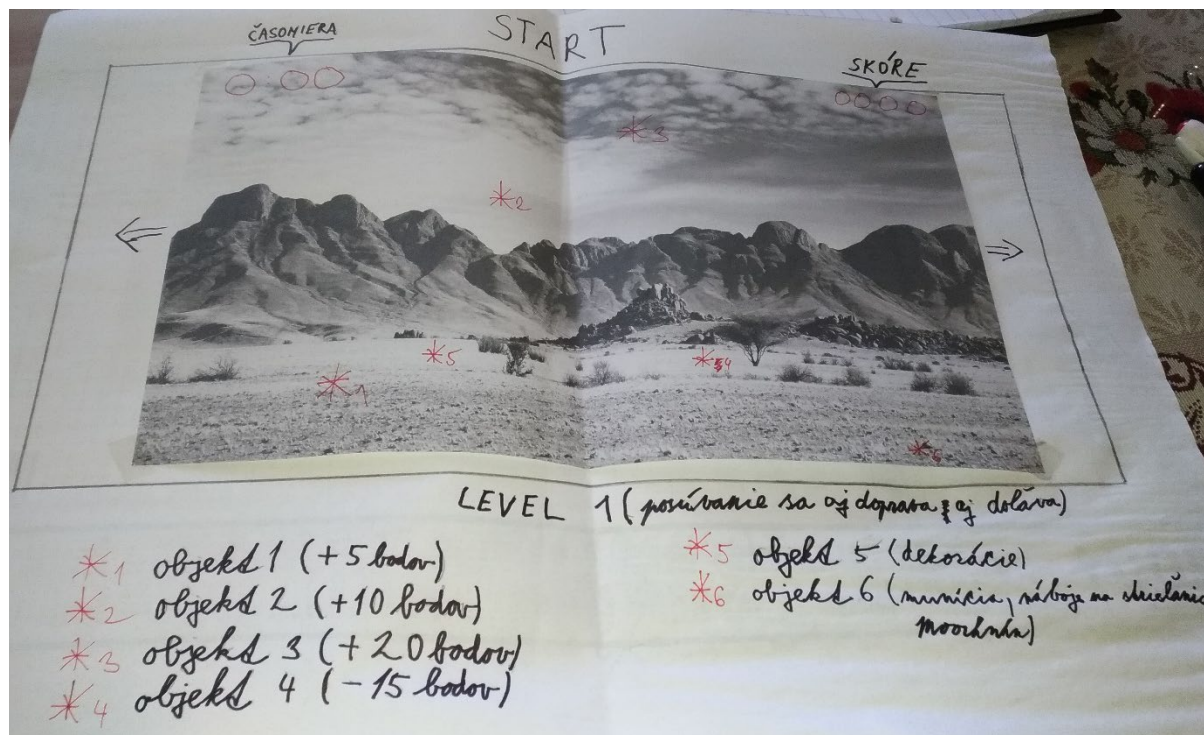 START
ČASOMIERA
SKÓRE
*3
*2
*5
*4
*1
*6
LEVEL 1 (posúvanie sa aj doprava aj doľava)
*1 objekt 1 (+5 bodov)
*2 objekt 2 (+10 bodov)
*3 objekt 3 (+20 bodov)
*4 objekt 4 (-15 bodov)
*5 objekt 5 (dekorácie)
*6 objekt 6 (munícia, náboje na strieľanie